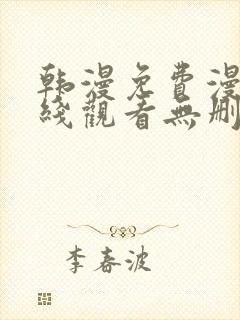 韩漫免費漫
綫觀看無刪
李春波